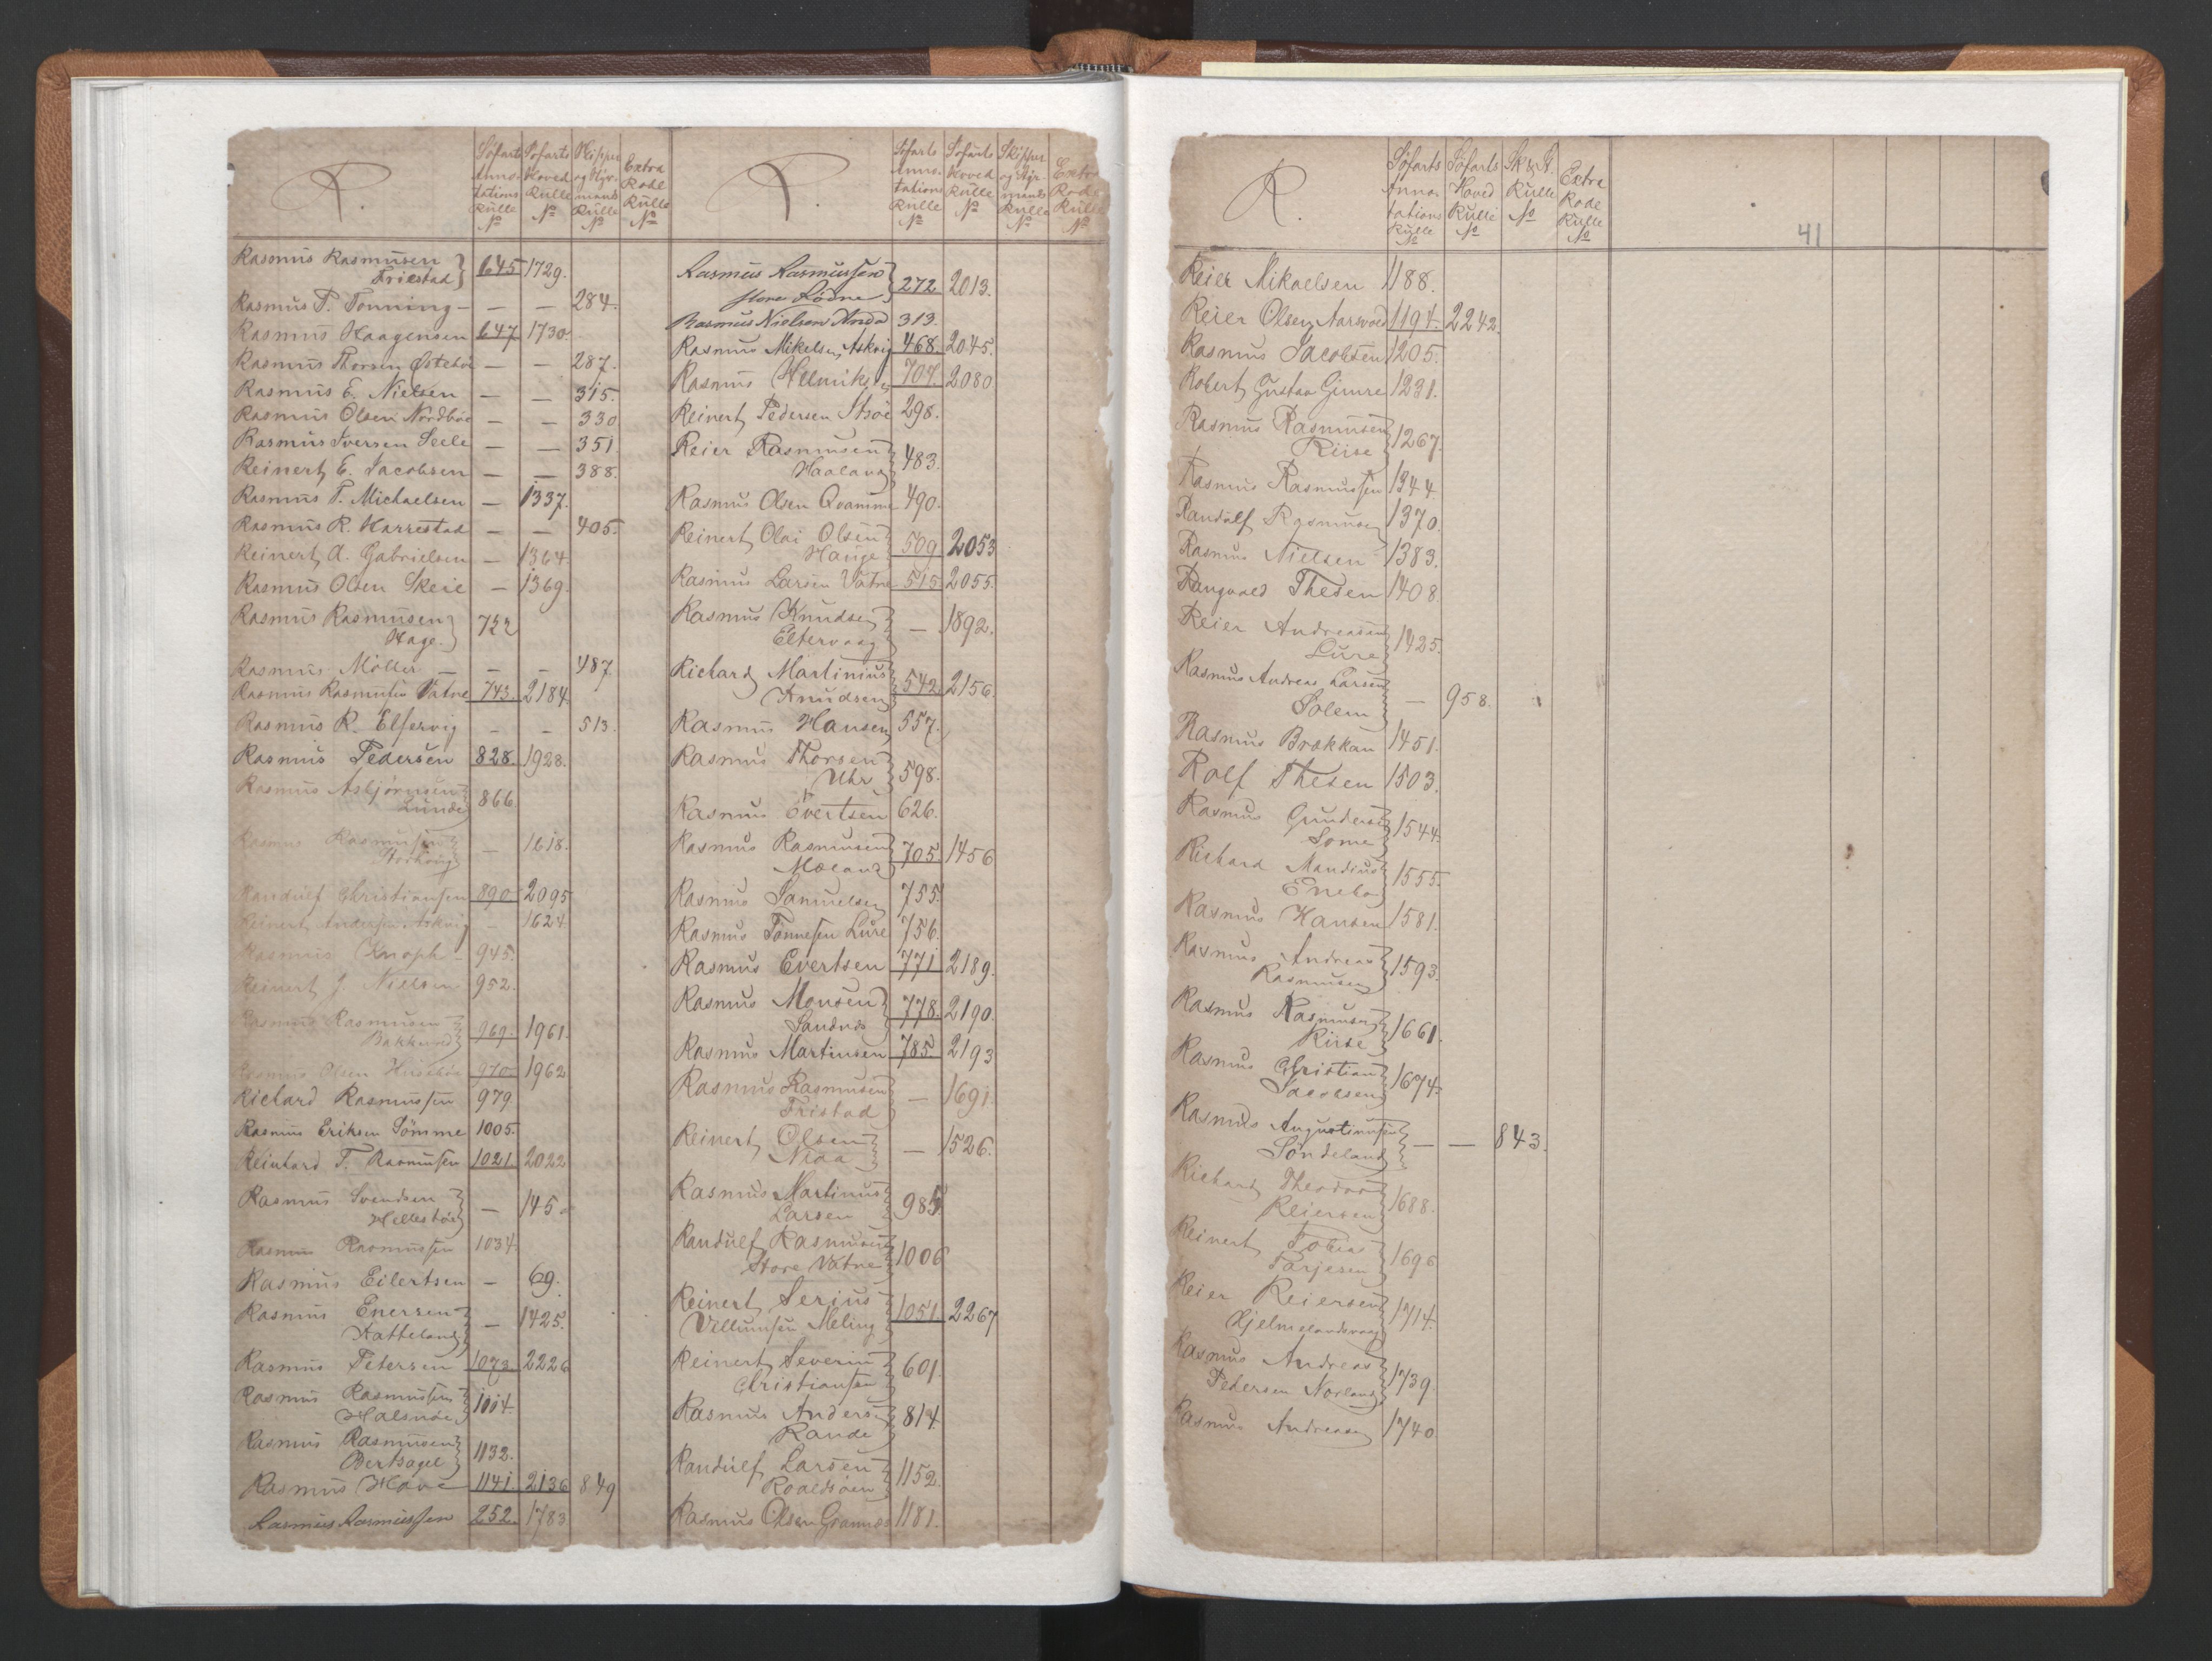 R.
Søfarts Annotations Rulle No
Søfarts Hoved Rulle No
Skipper og Styrmands Rulle No
Extra Rode Rulle No
Rasmus Rasmusen
Friestad } 645 1729.
Rasmus T. Tonning - — — 284.
Rasmus Haagensen 647 1730.
Rasmus Thorsen Østebø — — 287.
Rasmus E. Nielsen — — 315.
Rasmus Olsen Nordbøe — — 330
Rasmus Iversen Seele — — 351.
Reinert E. Jacobsen — — 388.
Rasmus T. Michaelsen — 1337.
Rasmus R. Harrestad — — 405.
Reinert A. Gabrielsen — 1364.
Rasmus Olsen Skeie — 1369.
Rasmus Rasmusen
Hage. } 722
Rasmus Møller — — — 487
Rasmus Rasmusen Vatne 743. 2184.
Rasmus R. Eltervig — — 513.
Rasmus Pedersen 828. 1928.
Rasmus Asbjørnsen
Lunde } 866.
Rasmus Rasmusen
Storhoug } — 1618.
Randulf Christiansen 890 2095
Reinert Andersen Askvig — 1624
Rasmus Knoph - 945.
Reinert J. Nielsen 952.
Rasmus Rasmusen
Bakkevold } 969. 1961.
Rasmus Olsen Husebø 970 1962
Richard Rasmussen 979
Rasmus Eriksen Sömme 1005.
Reinhard T. Rasmusen 1021. 2022
Rasmus Svendsen
Hellestøe } — 145.
Rasmus Rasmussen 1034.
Rasmus Eilertsen — 69.
Rasmus Enersen
Katteland } — 1425.
Rasmus Petersen 1073. 2226
Rasmus Rasmussen
Halsnøe } 1014.
Rasmus Rasmusen
Bertsagel } 1132.
Rasmus Hove 1141. 2136 849
Rasmus Rasmussen 252. 1783
R.
Søfarts Annotations Rulle No
Søfarts Hoved Rulle No
Skipper og Styrmands Rulle No
Extra Rode Rulle No
Rasmus Rasmussen
Store Lödne } 272 2013.
Rasmus Nielsen Anda 313.
Rasmus Mikelsen Askvig 468. 2045.
Rasmus Helmiksen 704. 2080
Reinert Pedersen Ströe 298.
Reier Rasmusen
Haaland } 483.
Rasmus Olsen Qvamme 490.
Reinert Olai Olsen
Hauge } 509 2053
Rasmus Larsen Vatne 515 2055.
Rasmus Knudsen
Eltervaag } — 1892.
Richard Martinius
Knudsen } 542. 2156.
Rasmus Hansen 557.
Rasmus Thorsen
Uhr } 598.
Rasmus Evertsen 626.
Rasmus Rasmusen
Mæland } 705. 1456
Rasmus Samuelsen 755.
Rasmus Tønnesen Lure 756.
Rasmus Evertsen 771 2189.
Rasmus Monsen
Sandnæs } 778. 2190.
Rasmus Martinsen 785. 2193
Rasmus Rasmusen
Fristad } — 1691.
Reinert Olsen
Niaa } — 1526.
Rasmus Martinus
Larsen } 985
Randulf Rasmusen
Store Vatne } 1006
Reinert Serius
Villumsen Meling } 1051. 2267
Reinert Severin
Christiansen } 601
Rasmus Andersen
Rande } 814.
Randulf Larsen
Roaldsöen } 1152.
Rasmus Olsen Grannes 1181.
R.
Søfarts Annotations Rulle No
Søfarts Hoved Rulle No
Sk & St. Rulle No
Extra Rode Rulle No
41
Reier Mikaelsen 1188.
Reier Olsen Aarsvold 1194. 2242.
Rasmus Jacobsen 1205.
Robert Gustav Gimre 1231.
Rasmus Rasmusen
Riise } 1267.
Rasmus Rasmussen 1344.
Randulf Rasmusen 1370.
Rasmus Nielsen 1383.
Rangvald Thesen 1408.
Reier Andreasen
Lure } 1425.
Rasmus Andreas Larsen
Solem } — 958.
Rasmus Brekkan 1451.
Rolf Thesen 1503.
Rasmus Gundersen
Some } 1544.
Richard Mandius
Enebo } 1555.
Rasmus Hansen 1581.
Rasmus Andreas
Rasmusen } 1593.
Rasmus Rasmusen
Riise } 1661.
Rasmus Christian
Jacobsen } 1674.
Rasmus Augustinusen
Søndeland } — — 843.
Richard Theodor
Reiersen } 1688.
Reinert Tobias
Tarjesen } 1696
Reier Reiersen
Hjelmelandsvaag } 1714.
Rasmus Andreas
Petersen Norland } 1739.
Rasmus Andreasen 1740